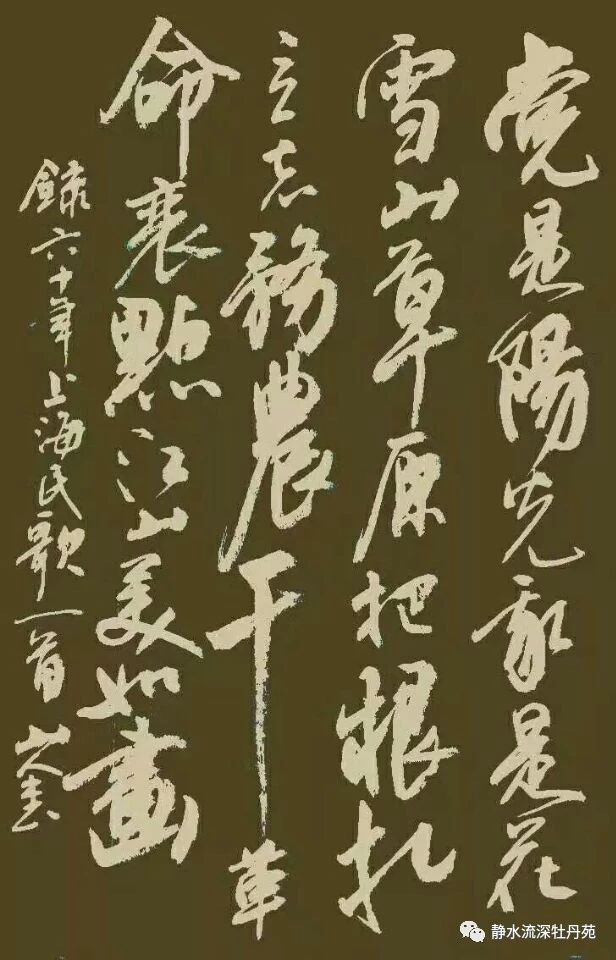 党是陽光我是花
雪山草原把根扎
立志務農干革
命裝點江山美如畫
錄六十年上海民歌一首
静水流深牡丹苑